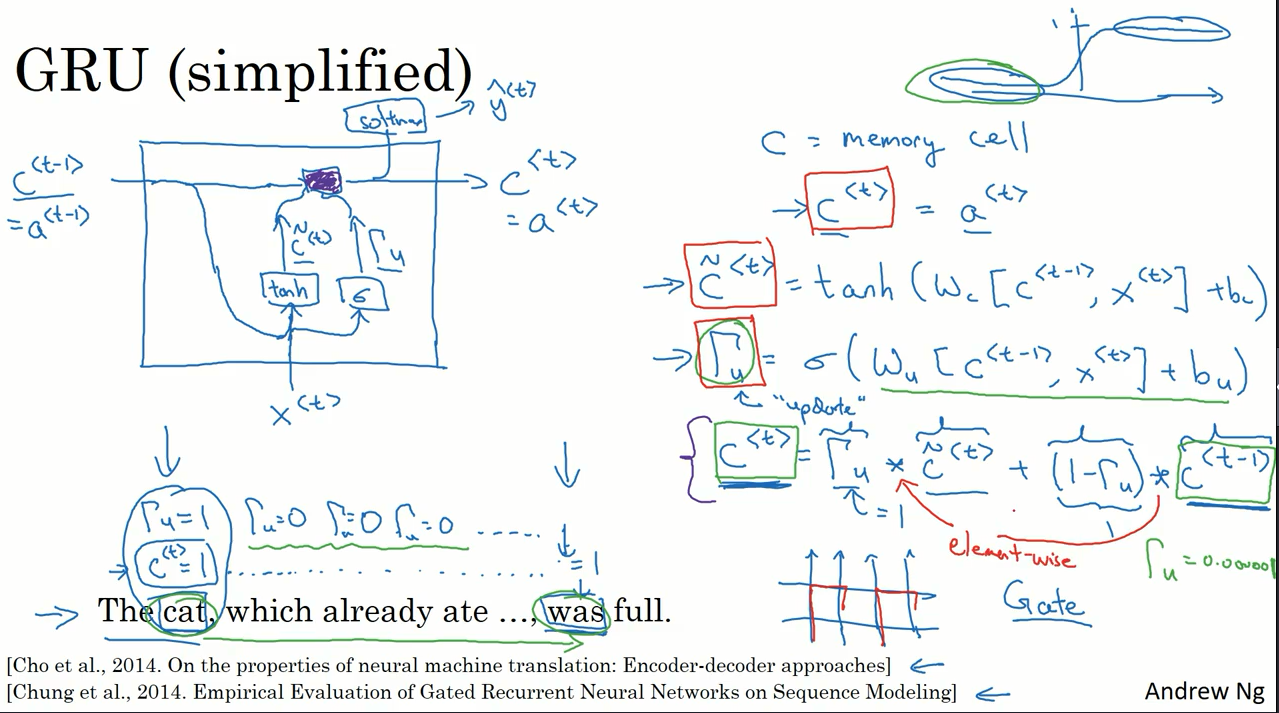 GRU (simplified)
softmax
ŷ^<t>
c^<t-1>
= a^<t-1>
c̃^<t>
Γu
tanh
σ
c^<t>
= a^<t>
x^<t>
1
c = memory cell
→ c^<t> = a^<t>
→ c̃^<t> = tanh (Wc [c^<t-1>, x^<t>] + bc)
→ Γu = σ (Wu [c^<t-1>, x^<t>] + bu)
"update"
c^<t> = Γu * c̃^<t> + (1-Γu) * c^<t-1>
= 1
1
element-wise
Γu = 0.000001
Gate
Γu=1 Γu=0 Γu=0 Γu=0 ------
c^<t>=1 .......... =1
The cat, which already ate ..., was full.
[Cho et al., 2014. On the properties of neural machine translation: Encoder-decoder approaches]
[Chung et al., 2014. Empirical Evaluation of Gated Recurrent Neural Networks on Sequence Modeling]
Andrew Ng